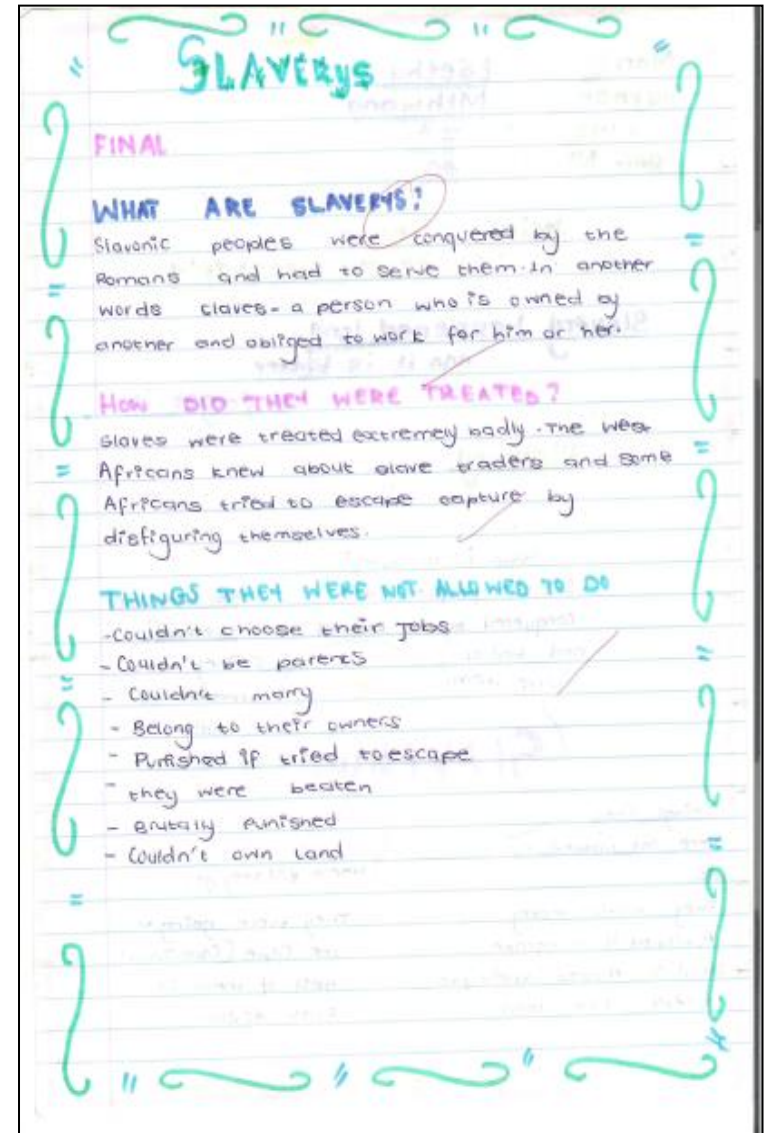 SLAVERYS
FINAL
WHAT ARE SLAVERYS?
Slavonic peoples were conquered by the
Romans and had to serve them. In another
words slaves - a person who is owned by
another and obliged to work for him or her.
HOW DID THEY WERE TREATED?
Slaves were treated extremey badly. The West
Africans knew about slave traders and some
Africans tried to escape capture by
disfiguring themselves.
THINGS THEY WERE NOT ALLOWED TO DO
-Couldn't choose their jobs
- Couldn't be parents
- Couldn't marry
- Belong to their owners
- Punished if tried to escape
- they were beaten
- Brutally punished
- Couldn't own land